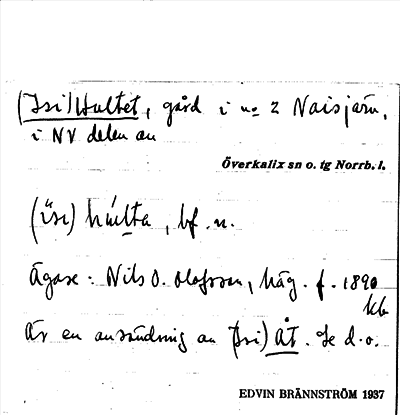 (Isi)Hultet, gård i no 2 Naisjärv,
i NV delen av
Överkalix sn o. tg Norrb. l.
(ísi) húlta, bf. n.
Ägare: Nils O. Olofsson, häg. f. 1890
kb
Är en avsöndring av (Isi) Åt. Se d.o.
EDVIN BRÄNNSTRÖM 1937